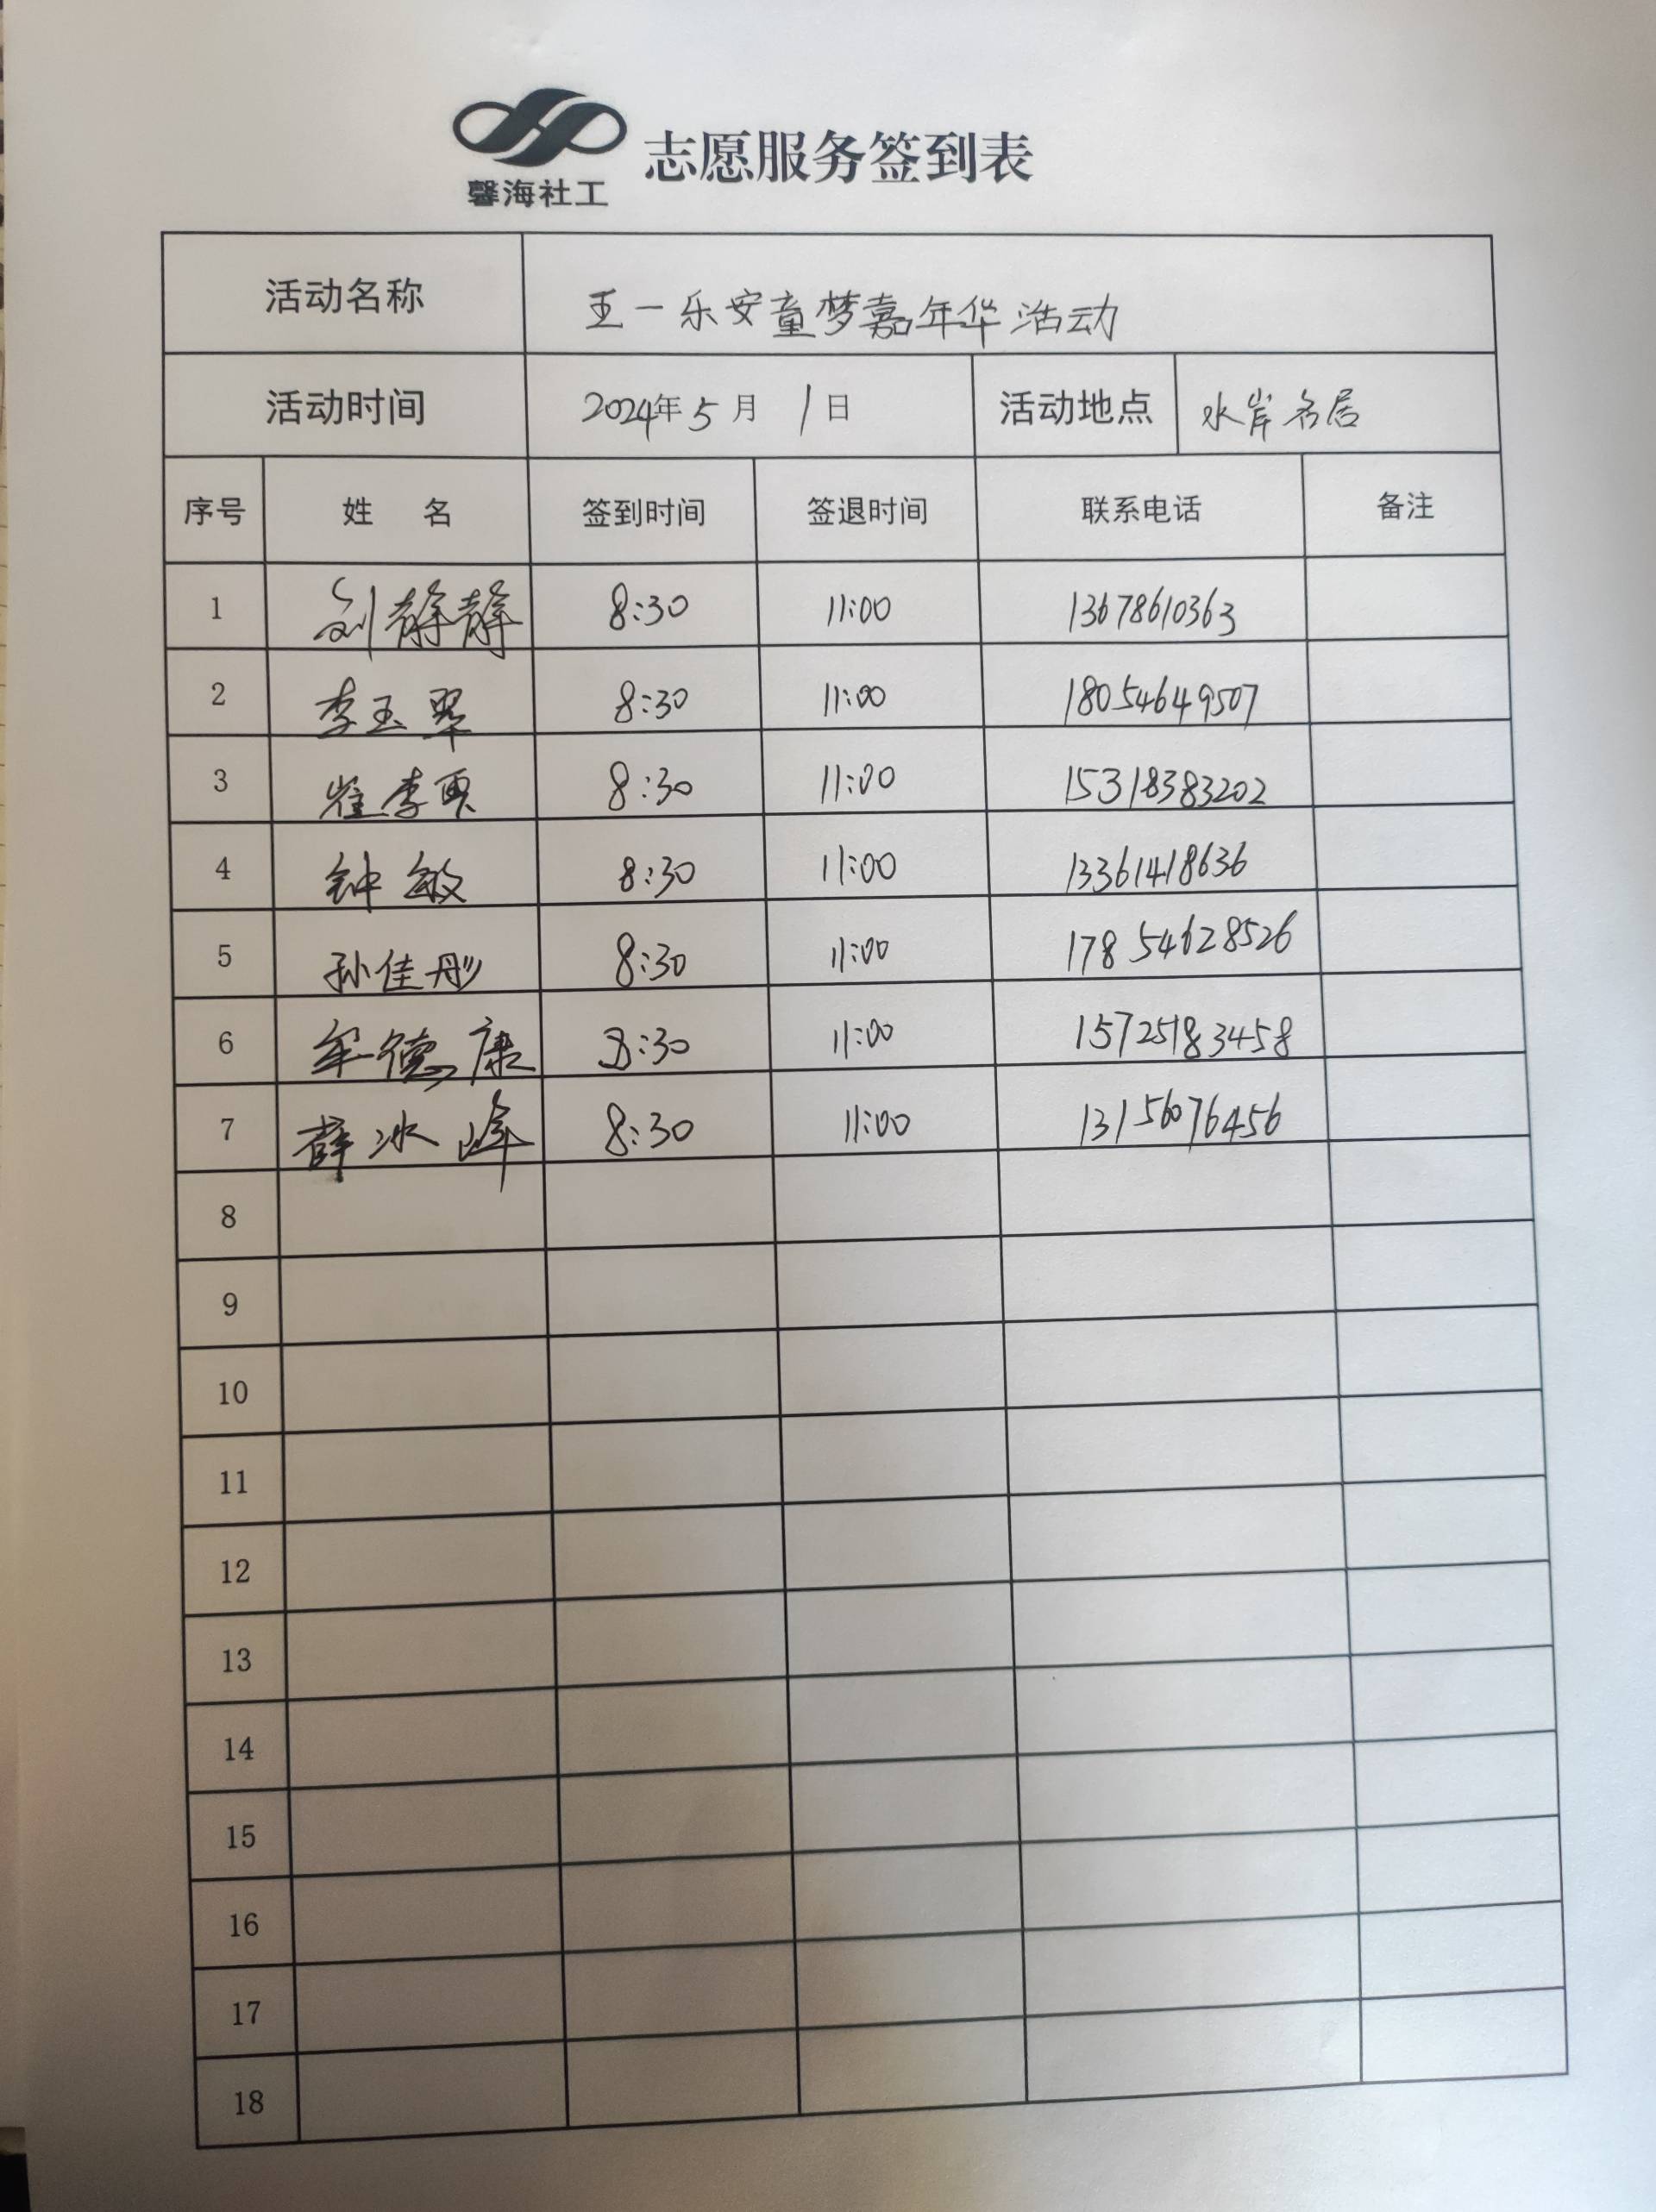 馨海社工
志愿服务签到表
活动名称 五一乐安童梦嘉年华活动
活动时间 2024年5月1日 活动地点 水岸名居
序号 姓 名 签到时间 签退时间 联系电话 备注
1 刘静静 8:30 11:00 13678610363
2 李玉翠 8:30 11:00 18054649507
3 崔李 8:30 11:00 15318383202
4 钟敏 8:30 11:00 13361418636
5 孙佳彤 8:30 11:00 17854628526
6 牟德康 8:30 11:00 15725183458
7 薛冰峰 8:30 11:00 13156076456
8
9
10
11
12
13
14
15
16
17
18